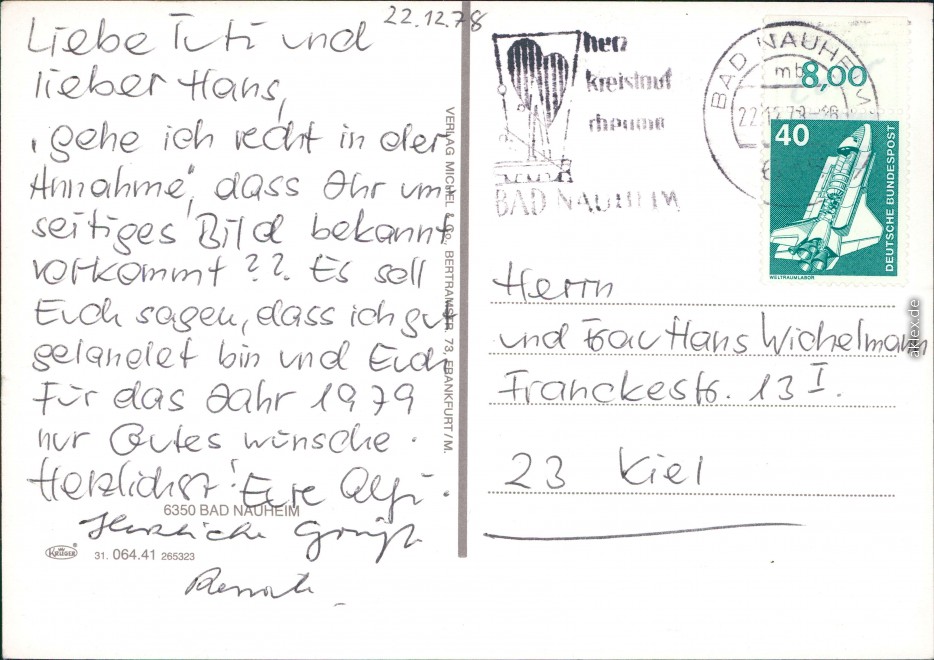 22.12.78
Liebe Tuti und
lieber Hans,
"gehe ich recht in der
Annahme", dass Ihr um-
seitiges Bild bekannt
vorkommt ?? Es soll
Euch sagen, dass ich gut
gelandet bin und Euch
für das Jahr 1979
nur Gutes wünsche.
Herzlichst! Eure
6350 BAD NAUHEIM
Herzliche Grüße
Renate
KRÜGER
31. 064.41 265323
VERLAG MICHEL & Co., BERTRAMSTR. 73, FRANKFURT/M.
herz
kreislauf
rheuma
BAD NAUHEIM
BAD NAUHEIM
mb
22.12.78-18
8,00
40
DEUTSCHE BUNDESPOST
WELTRAUMLABOR
Herrn
und Frau Hans Wichelmann
Franckestr. 13 I.
23 Kiel
akpool.de